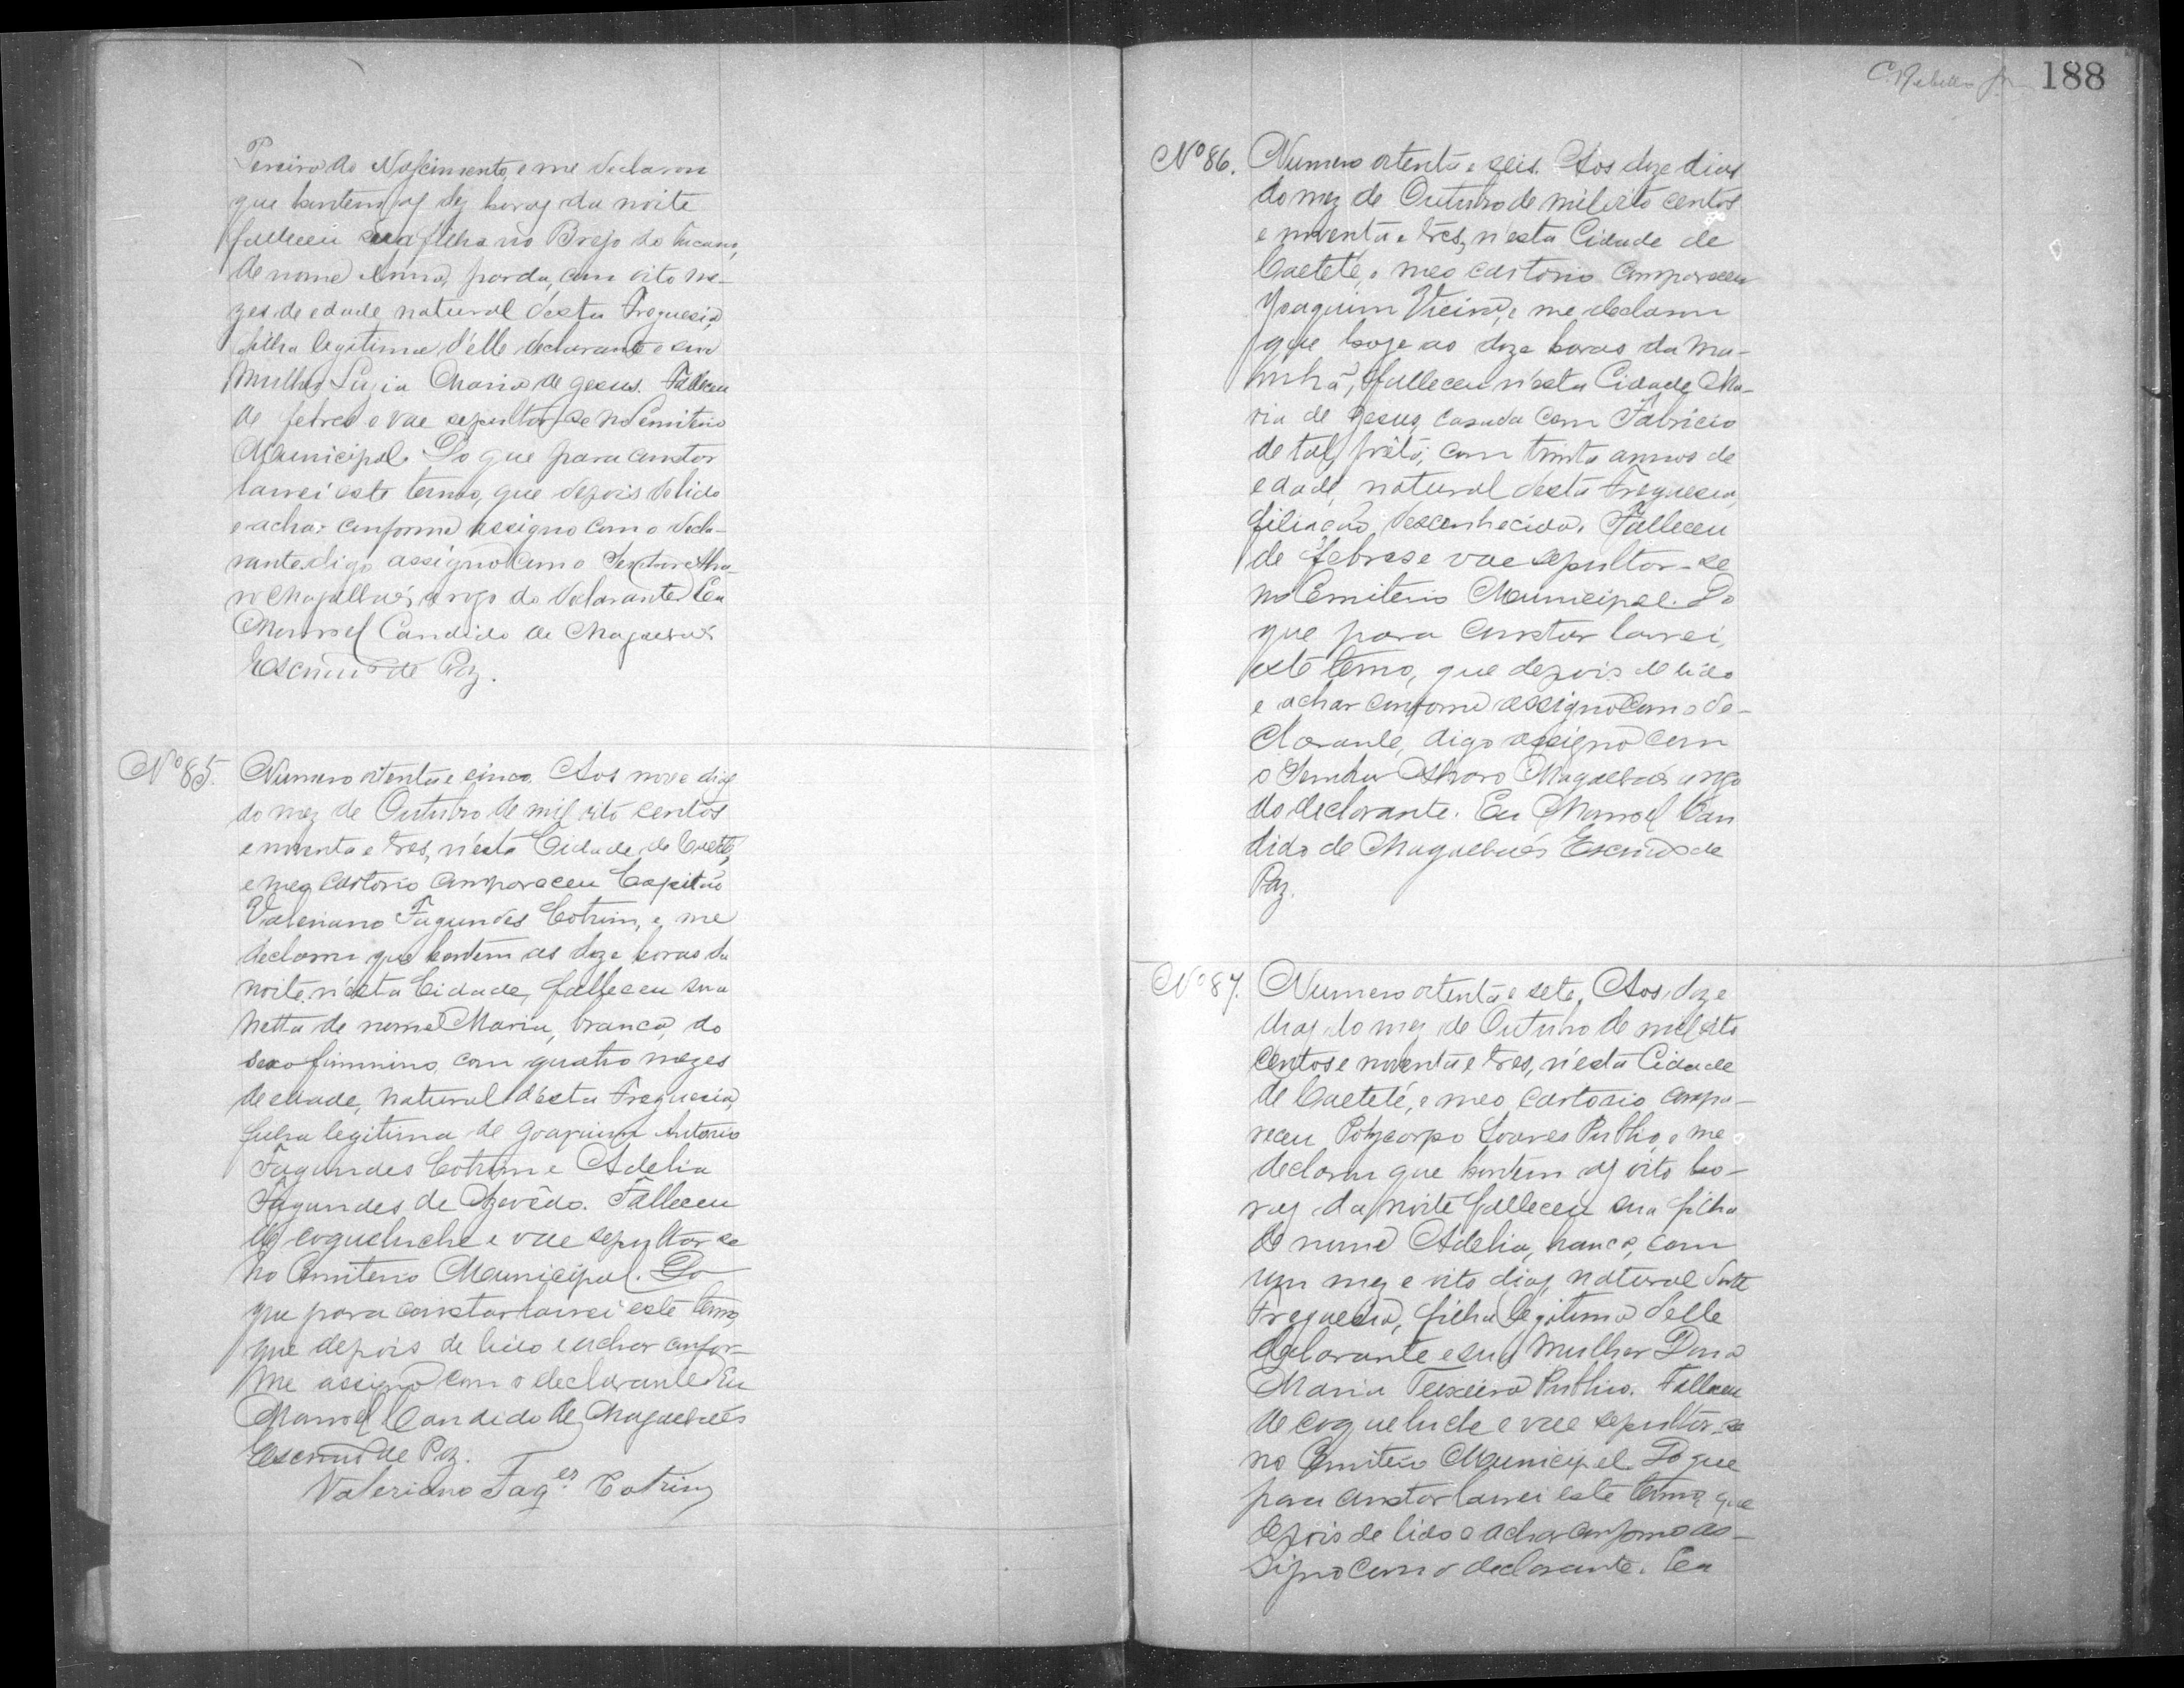 Pereira do Nascimento, e me declarou
que hontem as dez horas da noite
falleceu sua filha no Brejo do
de nome Anna, parda, com oito me-
zes de edade natural d'esta Freguesia,
filha legitima d'elle declarante e sua
mulher Luzia Maria de Jesus. Falleceu
de febre e vae sepultar-se no Cemiterio
Municipal. Do que para constar
lavrei este termo, que depois de lido
e achar conforme assigno com o decla-
rante digo assigno com o Senhor Alva-
ro Magalhães a rogo do declarante. Eu
Manoel Candido de Magalhães
Escrivão de Paz.
Nº 85. Numero oitenta e cinco. Aos nove dias
do mez de Outubro de mil oito centos
e noventa e tres, n'esta Cidade de Caeteté,
e meo Cartorio compareceu Capitão
Valeriano Fagundes Cotrim, e me
declarou que hontem as doze horas da
noite n'esta Cidade, falleceu sua
netta de nome Maria, branca, do
sexo feminino, com quatro mezes
de edade, natural d'esta Freguesia,
filha legitima de Joaquim Antonio
Fagundes Cotrim e Adelia
Fagundes de Azevêdo. Falleceu
de coqueluche e vae sepultar se
no Cemiterio Municipal. Do
que para constar lavrei este termo,
que depois de lido e achar confor-
me assigno com o declarante. Eu
Manoel Candido de Magalhães
Escrivão de Paz.
Valeriano Fag.es Cotrim
188
Nº 86. Numero oitenta e seis. Aos doze dias
do mez de Outubro de mil oito centos
e noventa e tres, n'esta Cidade de
Caeteté, e meo cartorio compareceu
Joaquim Vieira, e me declarou
que hoje as doze horas da ma-
nhã, falleceu n'esta Cidade Ma-
ria de Jesus, casada com Fabricio
de tal, prêta, com trinta annos de
edade, natural desta Freguesia,
filiação desconhecida. Falleceu
de febres e vae sepultar-se
no Cemiterio Municipal. Do
que para constar lavrei,
este termo, que depois de lido
e achar conforme assigno com o de-
clarante, digo assigno com
o Senhor Alvaro Magalhães a rogo
do declarante. Eu Manoel Can
dido de Magalhães Escrivão de
Paz.
Nº 87. Numero oitenta e sete. Aos doze
dias do mez de Outubro de mil oito
centos e noventa e tres, n'esta Cidade
de Caeteté, e meo Cartorio compa-
receu Polycarpo Soares Publio, e me
declarou que hontem as oito ho-
ras da noite falleceu sua filha
de nome Adelia, branca, com
um mez e oito dias, natural desta
Freguesia, filha legitima delle
declarante e sua mulher Dona
Maria Teixeira Publio. Falleceu
de coqueluche e vae sepultar-se
no Cemiterio Municipal. Do que
para constar lavrei este termo, que
depois de lido e achar conforme as-
signo com o declarante. Eu